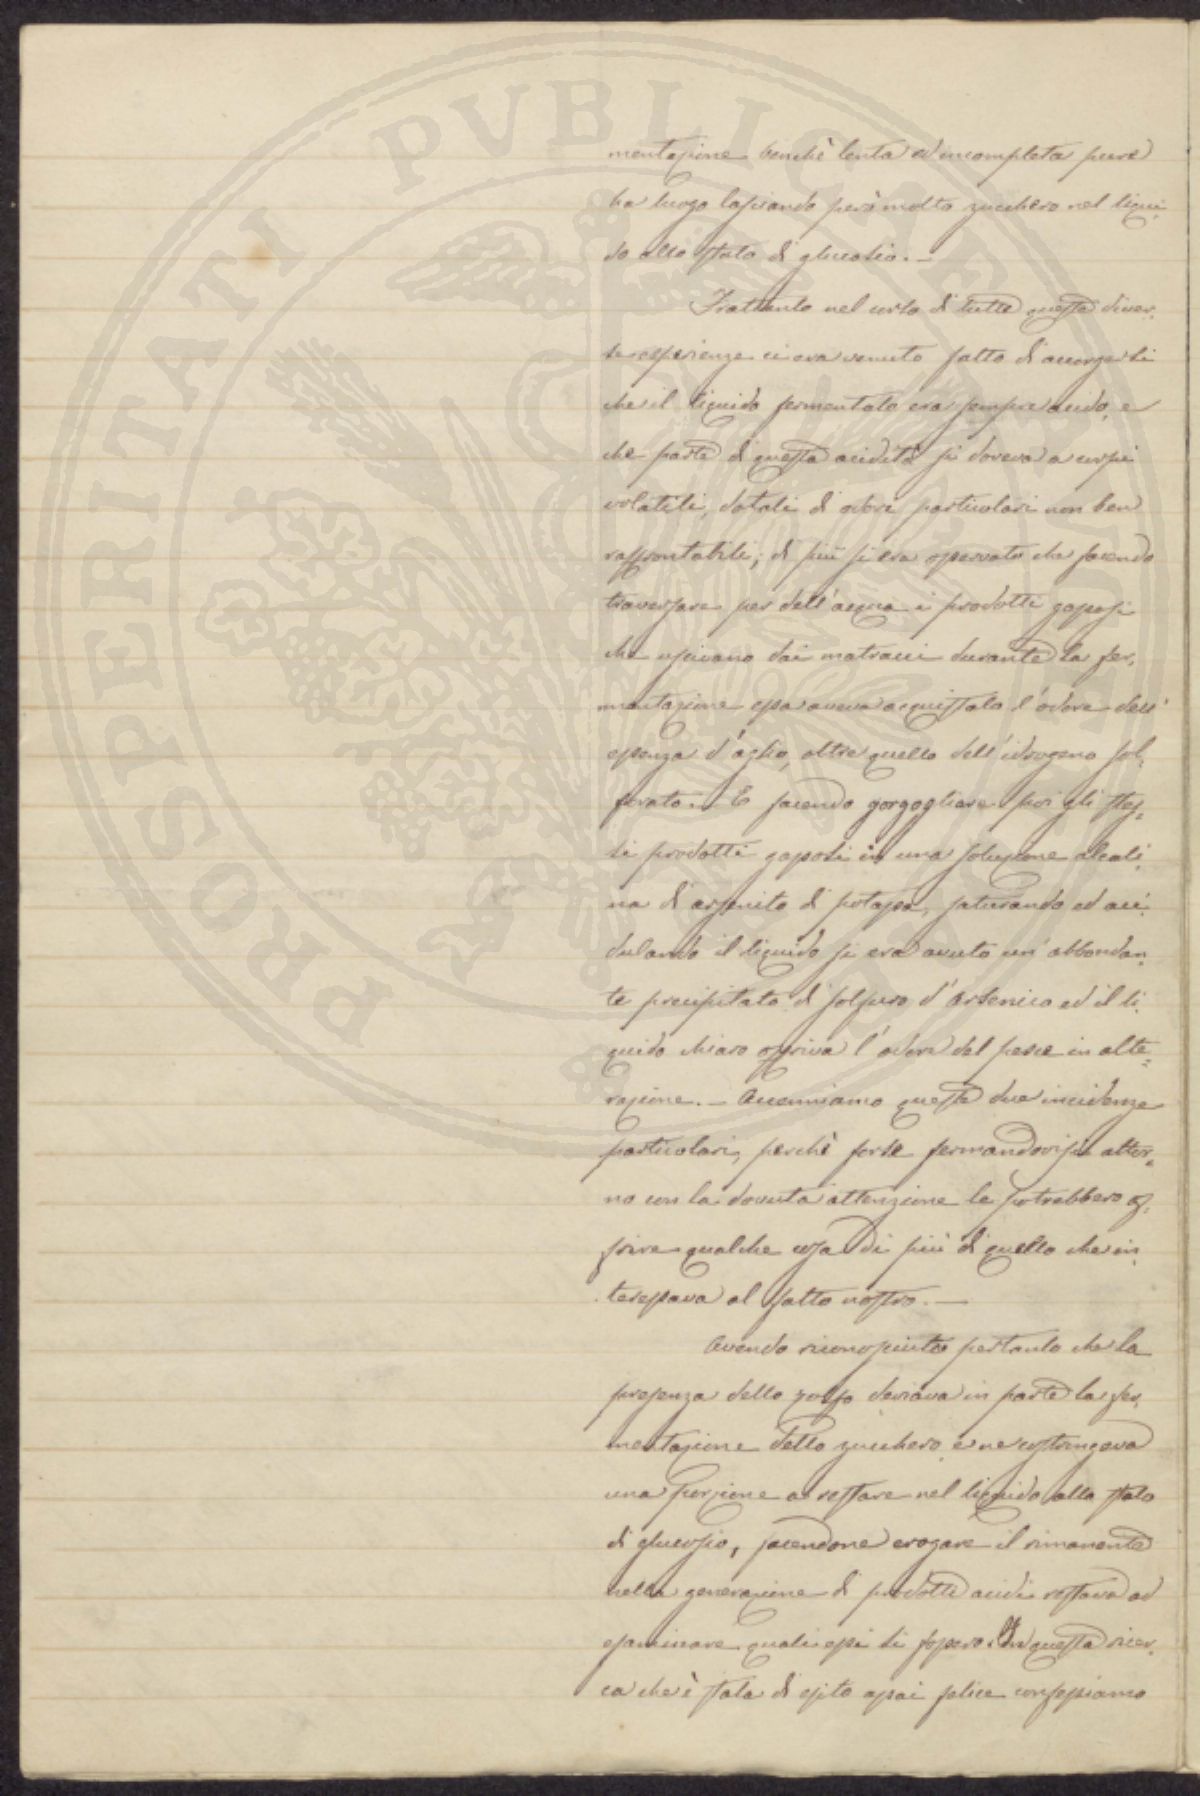 PROSPERITATI PUBLICAE AUGENDAE
mentazione benchè lenta ed incompleta pure
ha luogo lasciando però molto zucchero nel liqui-
do allo stato di glucosio. —
Frattanto nel corso di tutte queste diver-
se esperienze ci era venuto fatto di accorgersi
che il liquido fermentato era sempre acido, e
che parte di questa acidità si doveva a corpi
volatili, dotati di odori particolari non ben
raffrontabili; di più si era osservato che facendo
traversare per dell'acqua i prodotti gassosi
che uscivano dai matracci durante la fer-
mentazione essa aveva acquistato l'odore dell'
essenza d'aglio, oltre quello dell'idrogeno sol-
forato. — E facendo gorgogliare poi gli stes-
si prodotti gassosi in una soluzione alcali-
na di arsenito di potassa, saturando ed aci-
dulando il liquido si era avuto un'abbondan-
te precipitato di solfuro d'arsenico ed il li-
quido chiaro offriva l'odore del pesce in alte-
razione. — Accenniamo queste due incidenze
particolari, perchè forse fermandovisi attor-
no con la dovuta attenzione le potrebbero of-
frire qualche cosa di più di quello che in-
teressava al fatto nostro. —
Avendo riconosciuto pertanto che la
presenza dello zolfo deviava in parte la fer-
mentazione dello zucchero e ne costringeva
una porzione a restare nel liquido allo stato
di glucosio, facendone erogare il rimanente
nella generazione di prodotti acidi restava ad
esaminare quali essi si fossero. In questa ricer-
ca che è stata di esito assai felice confessiamo